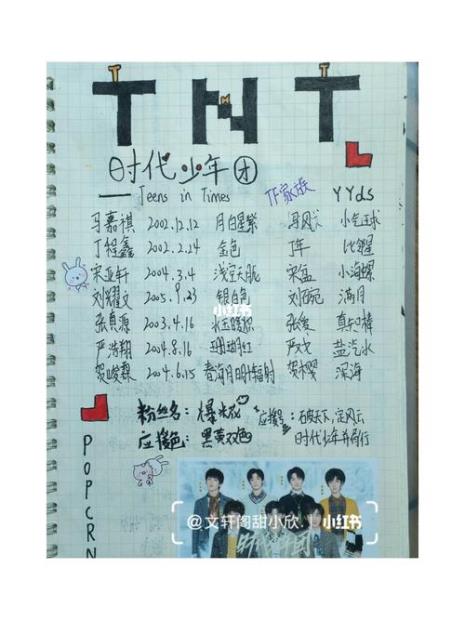 TNT
时代少年团
— Teens in Times TF家族 YYds
马嘉祺 2002.12.12 月白星繁 小气球
丁程鑫 2002.2.24 金色
宋亚轩 2004.3.4 浅空天 小海螺
刘耀文 2005.9.23 银白色 满月
小红书
张真源 2003.4.16 真知棒
严浩翔 2004.8.16 珊瑚红 盐汽水
贺峻霖 2004.6.15 海月明辐射 深海
粉丝名: 爆米花 应援: 石破天下,定风云
应援色: 黑黄双色 时代少年并肩行
POPCRN
@文轩阁甜小欣. 小红书
时代少年团